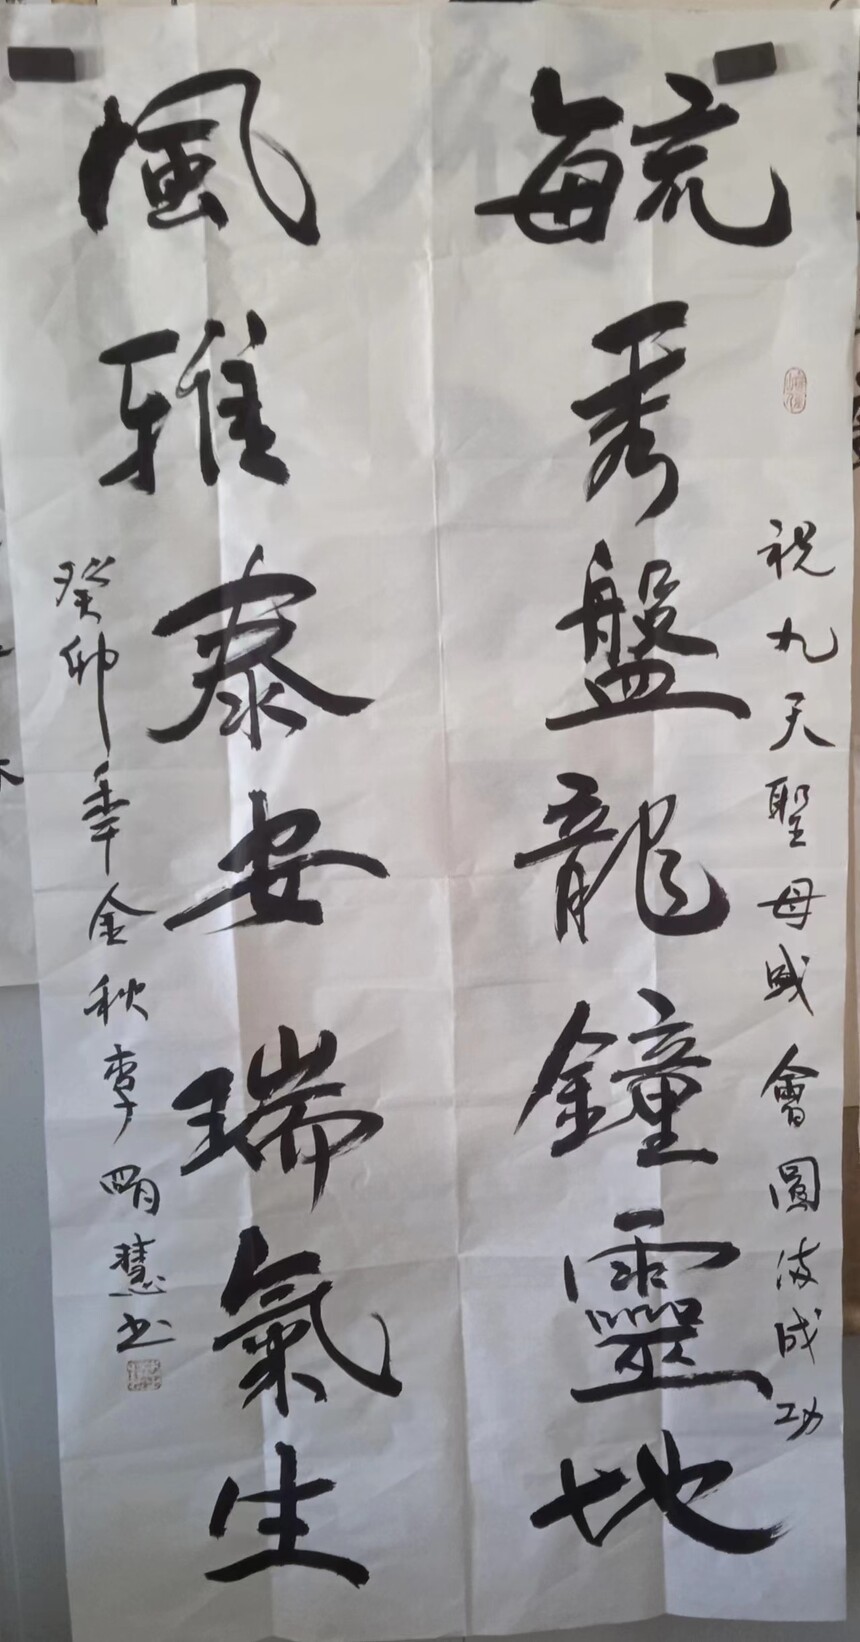 祝九天聖母盛會圓滿成功
毓秀盤龍鐘靈地
風雅泰安瑞氣生
癸卯年金秋李明慧书